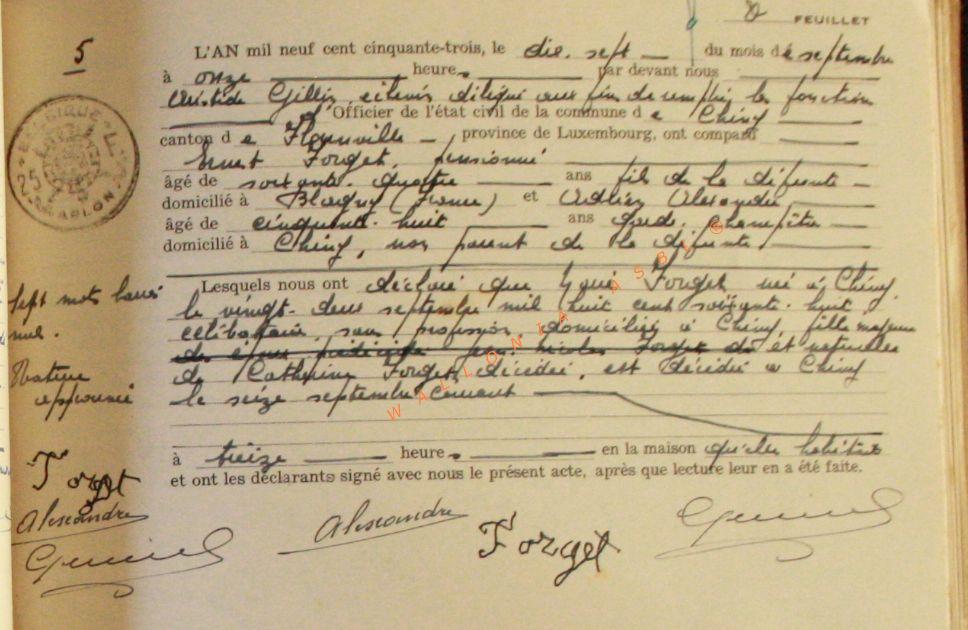 8 FEUILLET
5
L'AN mil neuf cent cinquante-trois, le dix. sept du mois de septembre
à onze heures par devant nous
Aristide échevin délégué aux fins de remplir les fonctions
Officier de l'état civil de la commune de Chiny
canton de Florenville province de Luxembourg, ont comparu
Ernest Forget, pensionné
âgé de soixante. quatre ans fils de la défunte
domicilié à Blagny (France) et Adelin Alexandre
âgé de cinquante. huit ans garde champêtre
domicilié à Chiny, non parent de la défunte
Lesquels nous ont déclaré que Marie Forget née à Chiny
le vingt. deux septembre mil huit cent soixante. huit
célibataire sans profession, domiciliée à Chiny, fille majeure
Nicolas Forget de et naturelle
de Catherine Forget, décédée, est décédée à Chiny
le seize septembre courant
à treize heures en la maison qu'elle habitait
et ont les déclarants signé avec nous le présent acte, après que lecture leur en a été faite.
Sept mots barrés
nul.
Rature
approuvée
Forget
Alexandre
Alexandre
Forget
BELGIQUE
25
ARLON
WALLONIA ASBL ©